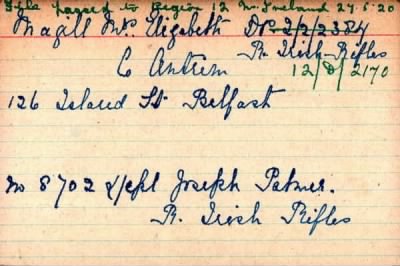 File passed to Region 12 N. Ireland 27.5.20
Magill Mrs Elizabeth DP 2/2/2384
R. Irish Rifles
Co Antrim 12/D/2170
126 Island St. Belfast
No 8702 L/Cpl Joseph Palmer.
R. Irish Rifles